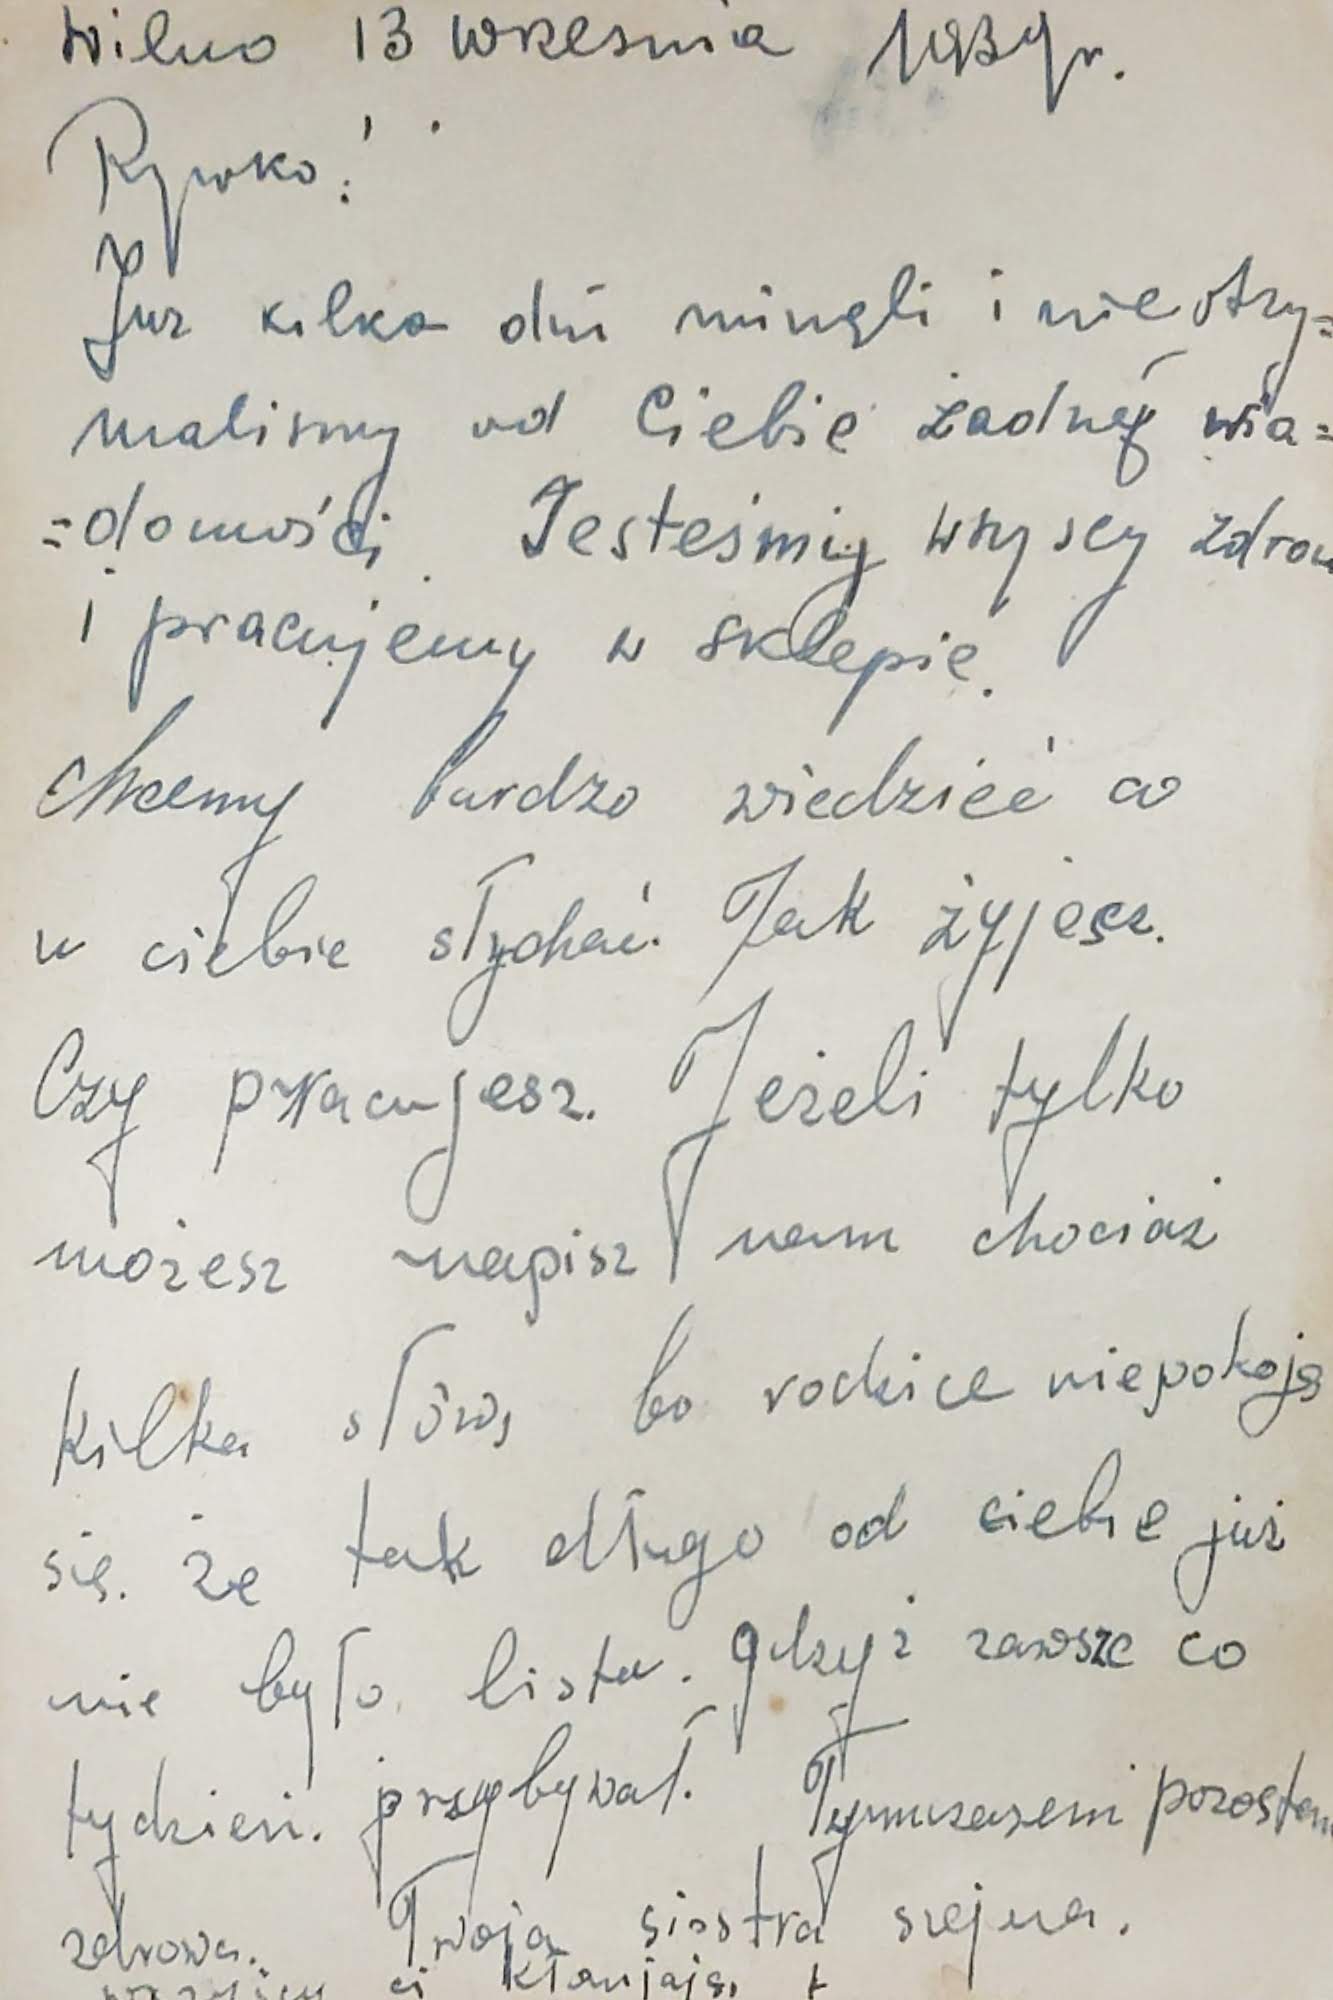 Wilno 13 wrzesnia 1939 r.
Rywko!
Juz kilka dni minęli i nie otrzy=
malismy od Ciebie żadnęj wia=
=domości. Jesteśmy wszyscy zdrow
i pracujemy w sklepie.
chcemy bardzo wiedzieć co
u ciebie słychać. Jak żyjesz.
Czy pracujesz. Jeżeli tylko
możesz napisz nam chociaż
kilka słów, bo rodzice niepokoją
się. że tak długo od ciebie już
nie było listu. gdzyż zawsze co
tydzień. przybywał. Tymczasem pozostań
zdrowa. Twoja siostra szejna.
wszyscy ci kłaniają.